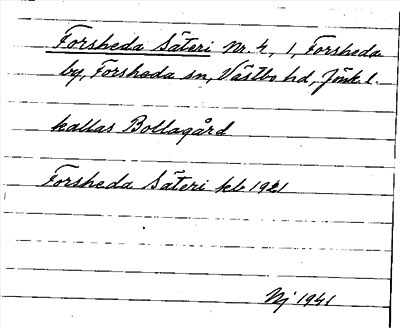 Forsheda Säteri Nr. 4, 1, Forsheda
by, Forsheda sn, Västbo hd, Jönk. l.
kallas Bollagård
Forsheda Säteri kb 1921
Nj 1941